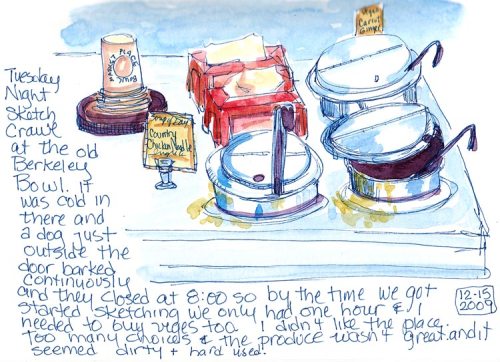 Vegan
Carrot
Ginger
Country
Chicken Noodle
Tuesday
Night
Sketch
Crawl
at the old
Berkeley
Bowl. It
was cold in
there and
a dog just
outside the
door barked
continuously
and they closed at 8:00 so by the time we got
started sketching we only had one hour & I
needed to buy veges too. I didn't like the place.
Too many choices & the produce wasn't great. and it
seemed dirty & hard used.
12-15
2009